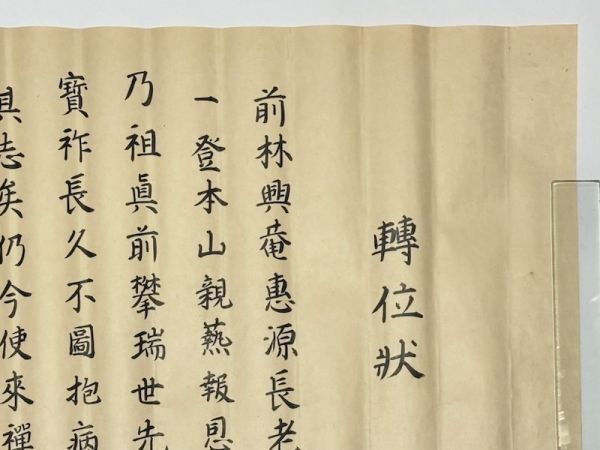 轉位狀
前林興庵惠源長老
一登本山親爇報恩
乃祖眞前攀瑞世先
寶祚長久不圖抱病
具志矣仍今使來禪